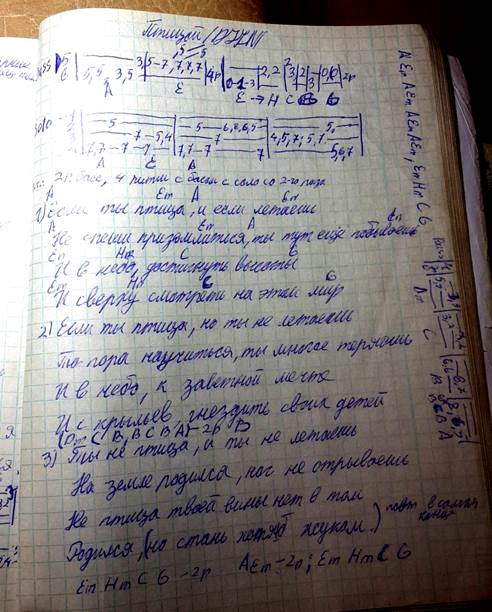 Птицей
5,5 3,5 3,5-7,7,7,7 4р 0-1-3 2,2 3 2 3 0,0 2р
A E E → H C G
Solo
5 5 - 6,8,6,5 5
7 - 5,4 7 4,5,7; 5,7
7,7-7 7,7-7 7 5,6,7
A E A
2р. басс, 4 ритм с басом с соло со 2-го раза
A Em A Em
1) Если ты птица, и если летаешь
A Em A Em
Не спеши приземлиться, ты тут ещё побываешь
Em Hm C G
И в небо, достигнуть высоты
Em Hm C G
И сверху смотреть на этот мир
2) Если ты птица, но ты не летаешь
То пора научиться, ты многое теряешь
И в небо, к заветной мечте
И с крыльев гнездить своих детей
(Dm C B, B C B A) - 2р
3) Ты не птица, и ты не летаешь
На земле родился, ног не отрываешь
Не птица твоей вины нет в том
Родился, (но стань хотя б жуком.) повт в самом конце
Em Hm C G - 2р A Em - 2р; Em Hm C G
A Em A Em A Em A Em, Em Hm C G
Dm C B B C B A